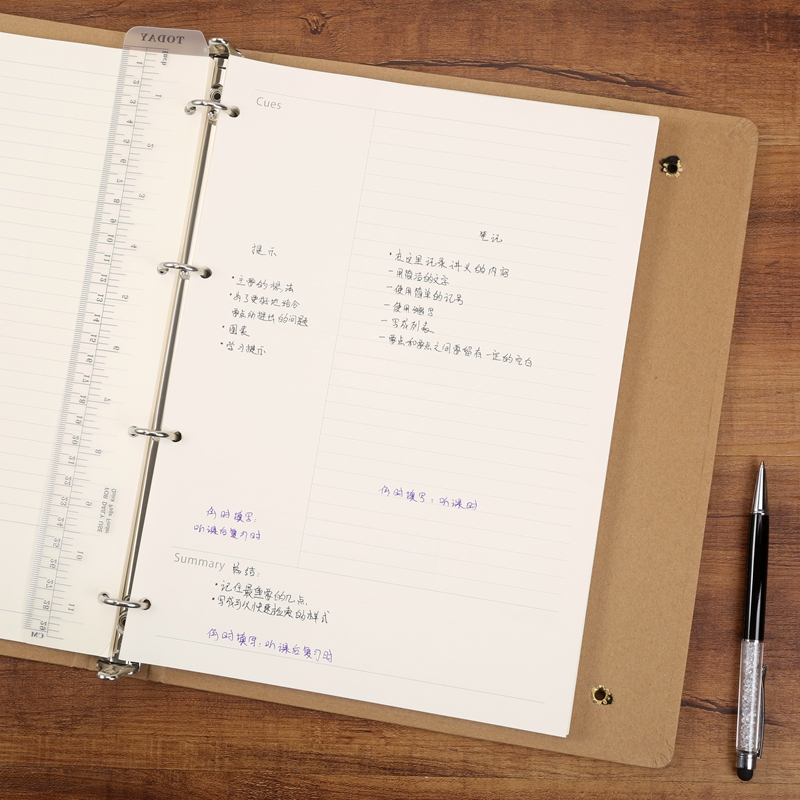 TODAY
Inch
Cues
提示
•主要的想法
•为了更好地结合
要点所提出的问题
•图表
•学习提示
何时填写：
听课后复习时
笔记
•在这里记录讲义的内容
－用简洁的文字
－使用简单的记号
－使用缩写
－写成列表
－要点和要点之间要留有一定的空白
何时填写：听课时
Summary 总结：
•记住最重要的几点
•写成可以快速检索的样式
何时填写：听课后复习时
CM